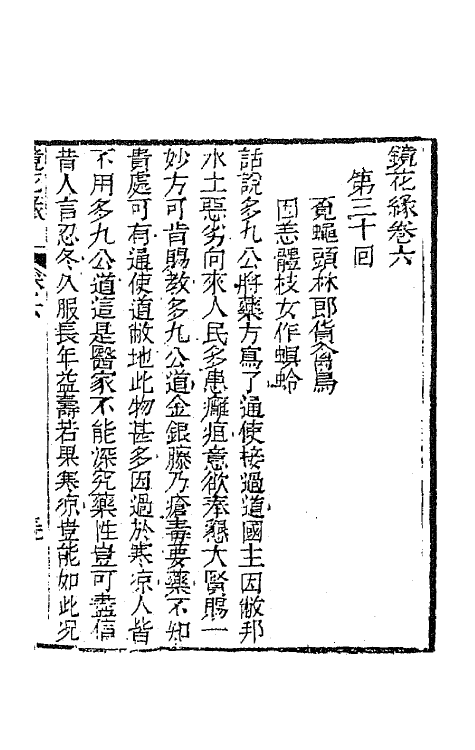 鏡花緣卷六
第三十回
覓蠅頭林郎貨禽鳥
因恙體枝女作螟蛉
話說多九公將藥方寫了通使接過道國主因敝邦
水土惡劣向來人民多患癰疽意欲奉懇大賢賜一
妙方可肯賜教多九公道金銀藤乃瘡毒要藥不知
貴處可有通使道敝地此物甚多因過於寒凉人皆
不用多九公道這是醫家不能深究藥性豈可盡信
昔人言忍冬久服長年益壽若果寒凉豈能如此況
鏡花緣